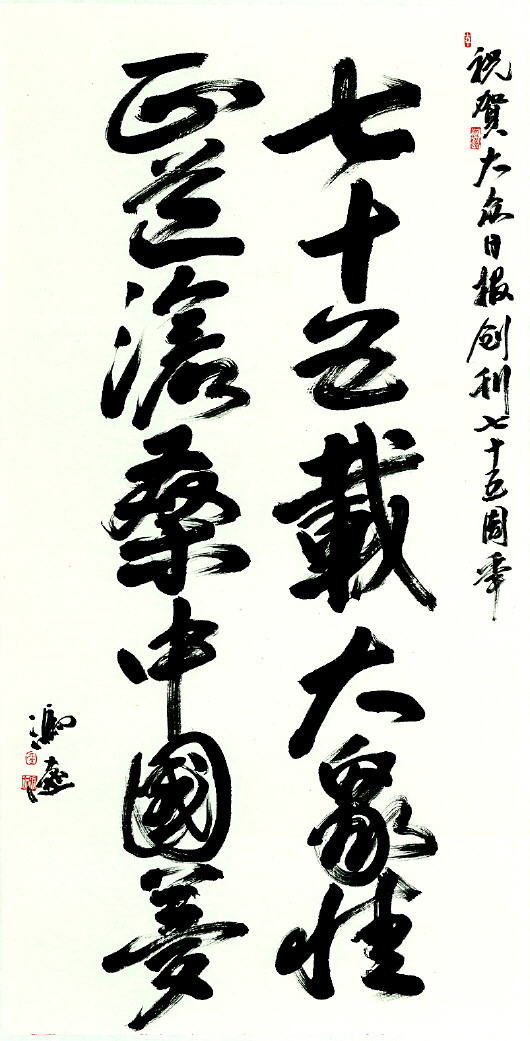 祝贺大众日报创刊七十五周年
七十五載大眾情
正道滄桑中國夢